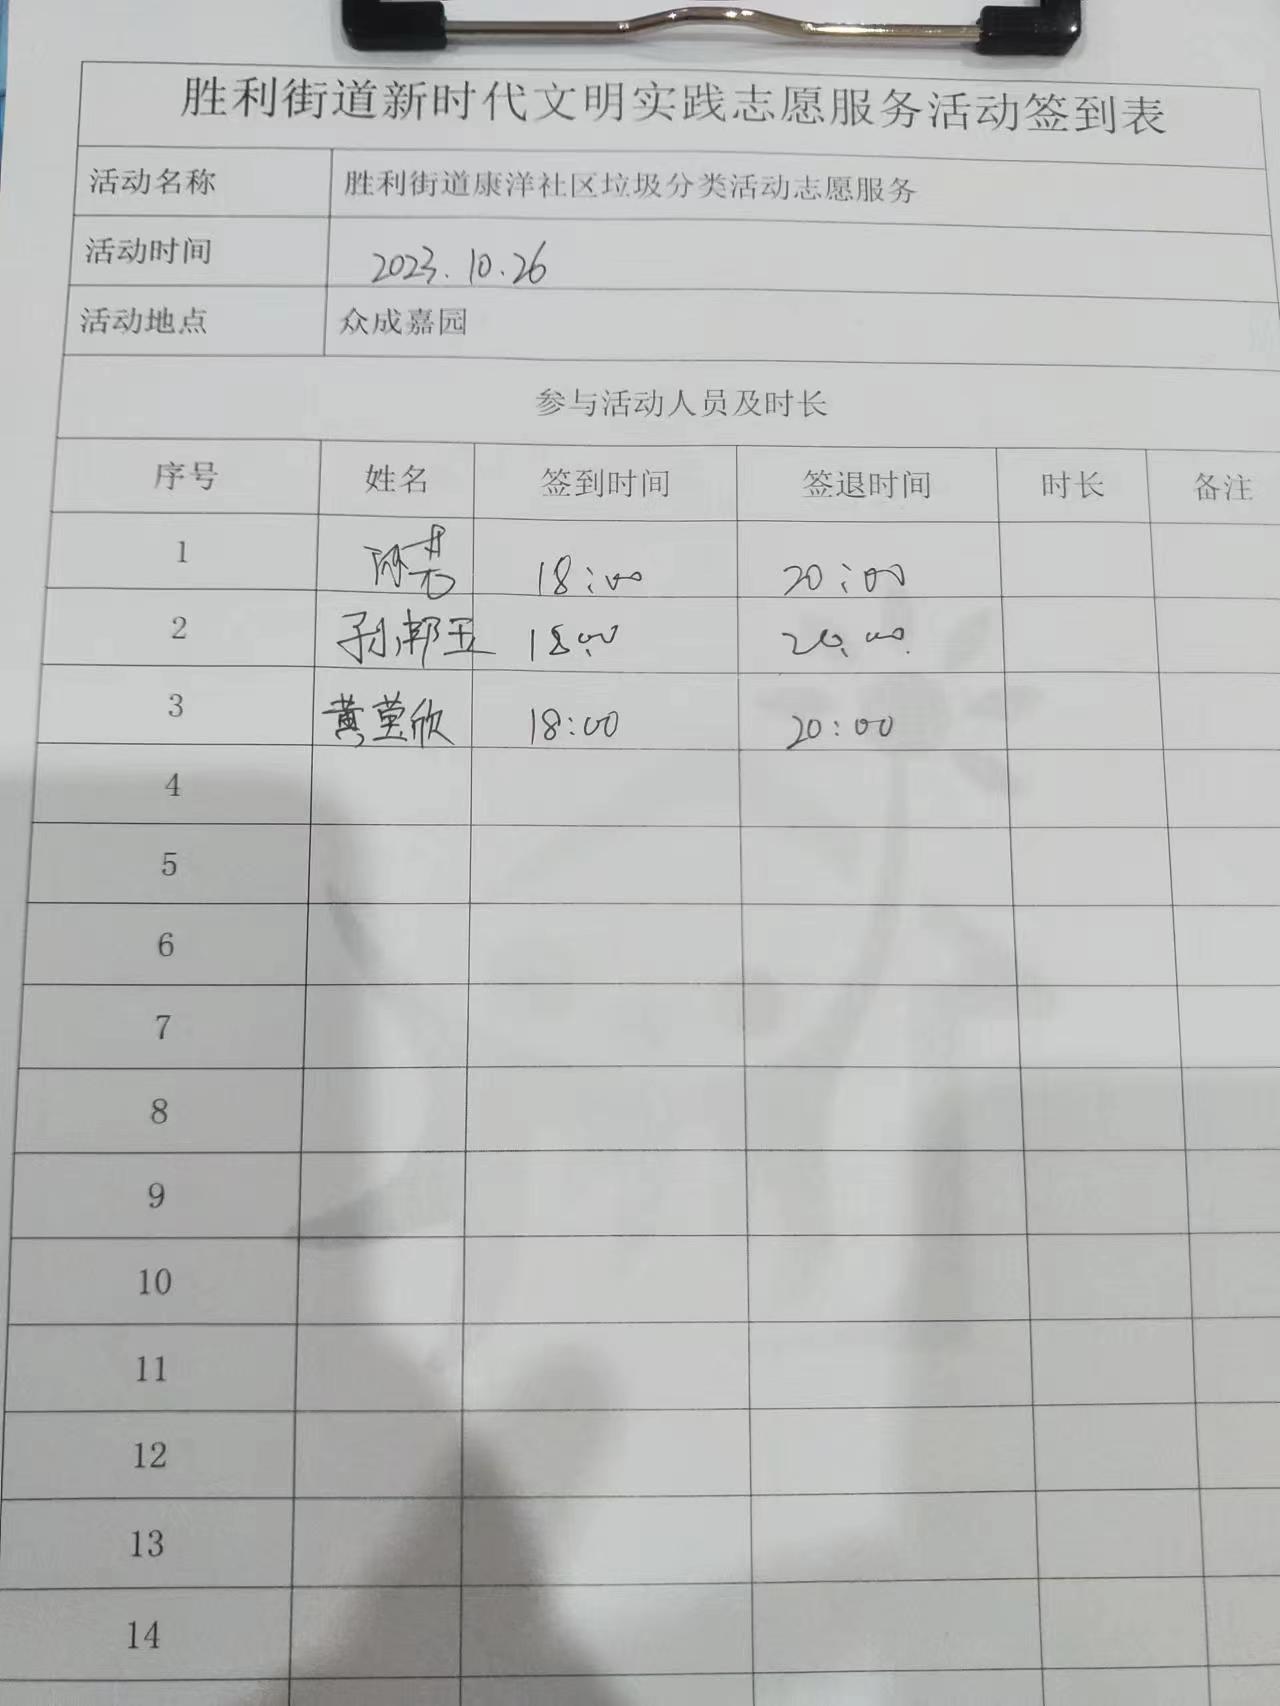 胜利街道新时代文明实践志愿服务活动签到表
活动名称 胜利街道康洋社区垃圾分类活动志愿服务
活动时间 2023.10.26
活动地点 众成嘉园
参与活动人员及时长
序号 姓名 签到时间 签退时间 时长 备注
1 18:00 20:00
2 孙邦玉 18:00 20:00
3 黄莹欣 18:00 20:00
4
5
6
7
8
9
10
11
12
13
14